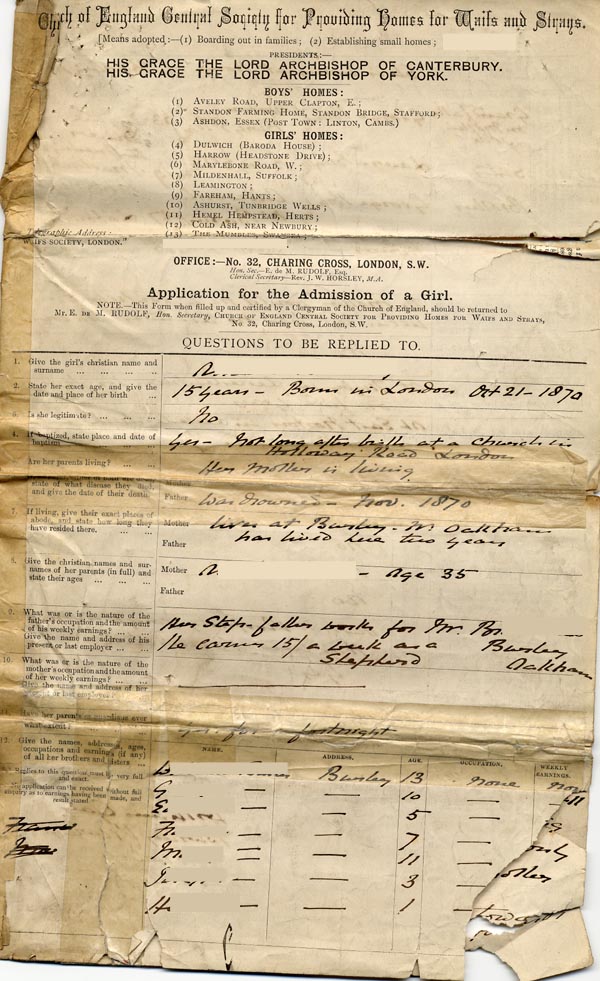 ch of England Central Society for Providing Homes for Waifs and Strays.
[Means adopted:—(1) Boarding out in families; (2) Establishing small homes;
PRESIDENTS:—
HIS GRACE THE LORD ARCHBISHOP OF CANTERBURY.
HIS GRACE THE LORD ARCHBISHOP OF YORK.
BOYS' HOMES:
(1) AVELEY ROAD, UPPER CLAPTON, E.;
(2) STANDON FARMING HOME, STANDON BRIDGE, STAFFORD;
(3) ASHDON, ESSEX (POST TOWN: LINTON, CAMBS.)
GIRLS' HOMES:
(4) DULWICH (BARODA HOUSE);
(5) HARROW (HEADSTONE DRIVE);
(6) MARYLEBONE ROAD, W.;
(7) MILDENHALL, SUFFOLK;
(8) LEAMINGTON;
(9) FAREHAM, HANTS;
(10) ASHURST, TUNBRIDGE WELLS;
(11) HEMEL HEMPSTEAD, HERTS;
(12) COLD ASH, NEAR NEWBURY;
(13) THE MUMBLES, SWANSEA;
Address:
WAIFS SOCIETY, LONDON."
OFFICE:—No. 32, CHARING CROSS, LONDON, S.W.
Hon. Sec.—E. de M. RUDOLF, Esq.
Clerical Secretary—Rev. J. W. HORSLEY, M.A.
Application for the Admission of a Girl.
NOTE.—This Form when filled up and certified by a Clergyman of the Church of England, should be returned to
Mr. E. DE M. RUDOLF, Hon. Secretary, CHURCH OF ENGLAND CENTRAL SOCIETY FOR PROVIDING HOMES FOR WAIFS AND STRAYS,
No. 32, Charing Cross, London, S.W.
QUESTIONS TO BE REPLIED TO.
1. Give the girl's christian name and
surname
2. State her exact age, and give the
date and place of her birth
15 years - Born in London Oct 21 - 1870
3. Is she legitimate?
No
4. If baptized, state place and date of
baptism
Yes - Not long after birth at a Church in
Holloway Road London
Are her parents living?
Her Mother is living
state of what disease they died,
and give the date of their death
Mother
Father
was drowned - Nov. 1870
7. If living, give their exact places of
abode, and state how long they
have resided there.
Mother
lives at Burley - Nr. Oakham
has lived here two years
Father
8. Give the christian names and sur-
names of her parents (in full) and
state their ages
Mother
- Age 35
Father
9. What was or is the nature of the
father's occupation and the amount
of his weekly earnings?
Give the name and address of his
present or last employer
Her Step-father works for Mr.
He earns 15/ a week as a Burley
Shepherd Oakham
10. What was or is the nature of the
mother's occupation and the amount
of her weekly earnings?
Give the name and address of her
or last employer?
Have her parents or guardians ever
what extent?
for a fortnight
12. Give the names, addresses, ages,
occupations and earnings (if any)
of all her brothers and sisters
Replies to this question must be very full
and exact.
No application can be received without full
enquiry as to earnings having been made, and
result stated
NAME. ADDRESS. AGE. OCCUPATION. WEEKLY EARNINGS.
Burley 13 none
G — 10 —
E — 5 —
7 —
M — 11 —
— 3 —
H — 1 —